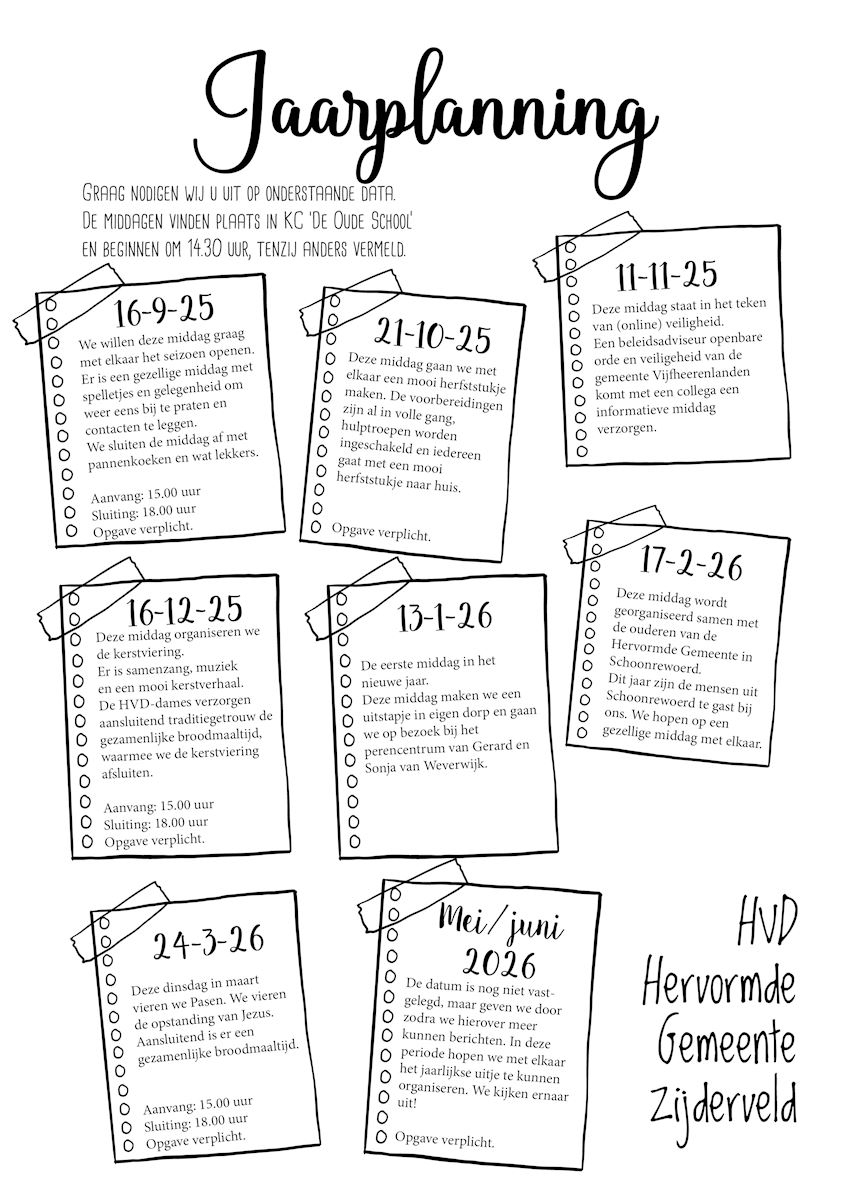 Jaarplanning
Graag nodigen wij u uit op onderstaande data.
De middagen vinden plaats in KC 'De Oude School'
en beginnen om 14.30 uur, tenzij anders vermeld.
16-9-25
We willen deze middag graag
met elkaar het seizoen openen.
Er is een gezellige middag met
spelletjes en gelegenheid om
weer eens bij te praten en
contacten te leggen.
We sluiten de middag af met
pannenkoeken en wat lekkers.
Aanvang: 15.00 uur
Sluiting: 18.00 uur
Opgave verplicht.
21-10-25
Deze middag gaan we met
elkaar een mooi herfststukje
maken. De voorbereidingen
zijn al in volle gang,
hulptroepen worden
ingeschakeld en iedereen
gaat met een mooi
herfststukje naar huis.
Opgave verplicht.
11-11-25
Deze middag staat in het teken
van (online) veiligheid.
Een beleidsadviseur openbare
orde en veiligeheid van de
gemeente Vijfheerenlanden
komt met een collega een
informatieve middag
verzorgen.
16-12-25
Deze middag organiseren we
de kerstviering.
Er is samenzang, muziek
en een mooi kerstverhaal.
De HVD-dames verzorgen
aansluitend traditiegetrouw de
gezamenlijke broodmaaltijd,
waarmee we de kerstviering
afsluiten.
Aanvang: 15.00 uur
Sluiting: 18.00 uur
Opgave verplicht.
13-1-26
De eerste middag in het
nieuwe jaar.
Deze middag maken we een
uitstapje in eigen dorp en gaan
we op bezoek bij het
perencentrum van Gerard en
Sonja van Weverwijk.
17-2-26
Deze middag wordt
georganiseerd samen met
de ouderen van de
Hervormde Gemeente in
Schoonrewoerd.
Dit jaar zijn de mensen uit
Schoonrewoerd te gast bij
ons. We hopen op een
gezellige middag met elkaar.
24-3-26
Deze dinsdag in maart
vieren we Pasen. We vieren
de opstanding van Jezus.
Aansluitend is er een
gezamenlijke broodmaaltijd.
Aanvang: 15.00 uur
Sluiting: 18.00 uur
Opgave verplicht.
Mei/juni
2026
De datum is nog niet vast-
gelegd, maar geven we door
zodra we hierover meer
kunnen berichten. In deze
periode hopen we met elkaar
het jaarlijkse uitje te kunnen
organiseren. We kijken ernaar
uit!
Opgave verplicht.
HVD
Hervormde
Gemeente
Zijderveld